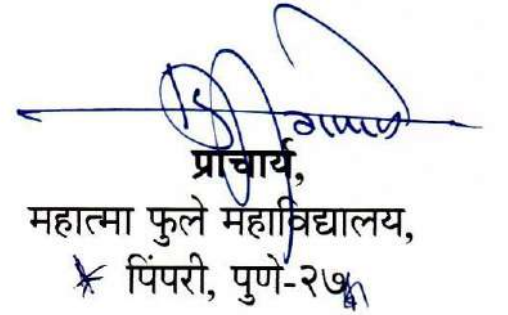 प्राचार्य,
महात्मा फुले महाविद्यालय,
पिंपरी, पुणे-२७